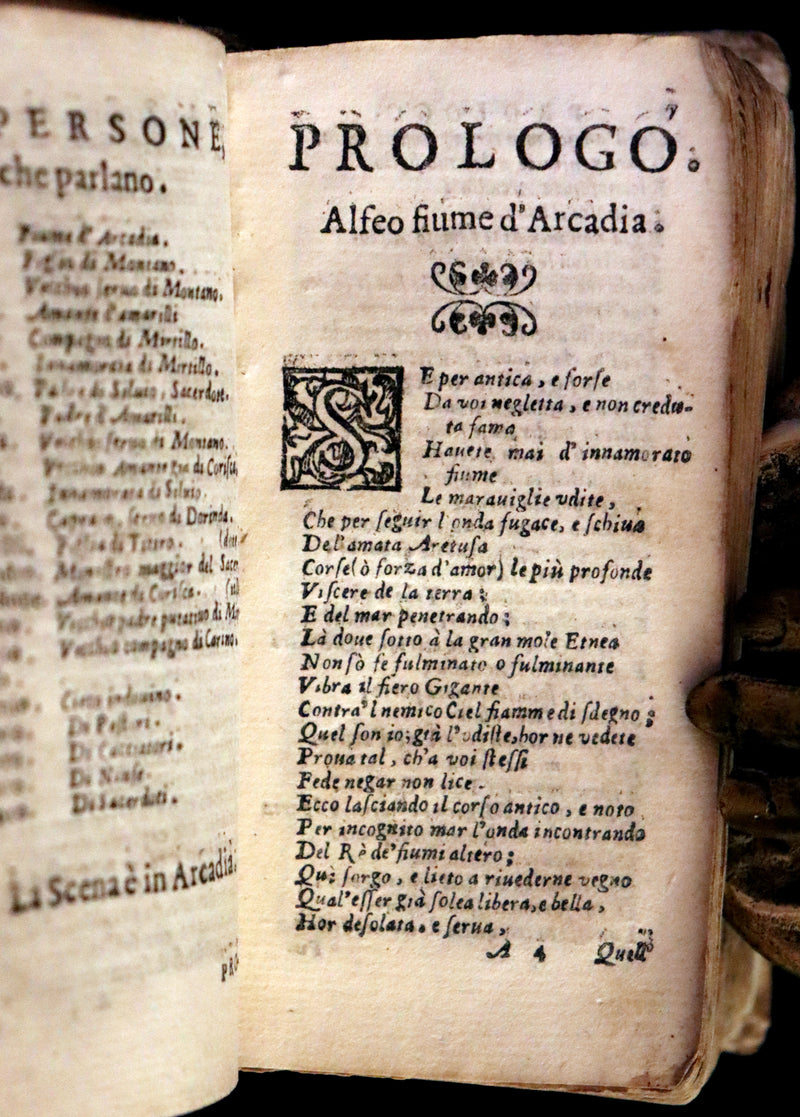 PERSONE,
che parlano.
Fiume d'Arcadia.
di Montano.
Vecchio seruo di Montano.
Amante d'amarilli
Compagno di Mirtillo.
Innamorata di Mirtillo.
di Siluio, Sacerdote.
Padre d'Amarilli.
Vecchio seruo di Montano.
Vecchio Amante di Corisca,
Innamorata di Siluio.
seruo di Dorinda.
maggior del Sacer
Amante di Corisca.
Vecchio padre putatiuo di Mir
Vecchio compagno di Carino.
Cieco indouino.
Di Pastori.
Di Cacciatori.
Di Ninfe.
Di Sacerdoti.
La Scena è in Arcadia.
PRO
PROLOGO.
Alfeo fiume d'Arcadia.
SE per antica, e forſe
Da voi negletta, e non credu-
ta fama
Hauete mai d'innamorato
fiume
Le marauiglie vdite,
Che per ſeguir l'onda fugace, e ſchiua
Del'amata Aretuſa
Corſe (ò forza d'amor) le più profonde
Viſcere de la terra;
E del mar penetrando;
Là doue ſotto à la gran mole Etnea
Non sò ſe fulminato o fulminante
Vibra il fiero Gigante
Contra'l nemico Ciel fiamme di ſdegno;
Quel ſon io; già l'vdiſte, hor ne vedete
Proua tal, ch'a voi ſteſſi
Fede negar non lice.
Ecco laſciando il corſo antico, e noto
Per incognito mar l'onda incontrando
Del Rè de'fiumi altero;
Quì ſorgo, e lieto a riuederne vegno
Qual'eſſer già ſolea libera, e bella,
Hor deſolata, e ſerua,
A 4 Quell'